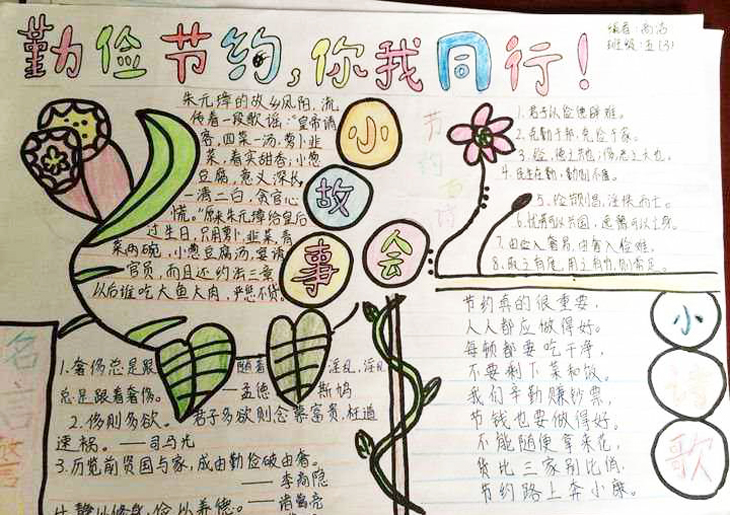 勤俭节约,你我同行!
编者:
班级:五(3)
朱元璋的故乡凤阳,流
传着一段歌谣:"皇帝请
客,四菜一汤,萝卜韭
菜,着实甜香;小葱
豆腐,意义深长,
一清二白,贪官心
慌。"原来朱元璋给皇后
过生日,只用萝卜、韭菜,青
菜两碗,小葱豆腐汤,宴请
官员,而且还约法三章:
以后谁吃大鱼大肉,严惩不贷。
小
故
事
会
节约
1.君子以俭德辟难。
2.克勤于邦,克俭于家。
3.俭,德之共也;侈,恶之大也。
4.民生在勤,勤则不匮。
5.俭节则昌,淫佚则亡。
6.忧劳可以兴国,逸豫可以亡身。
7.由俭入奢易,由奢入俭难。
8.取之有度,用之有节,则常足。
名
言
1.奢侈总是跟随着淫乱,淫乱
总是跟着奢侈。——孟德斯鸠
2.侈则多欲。君子多欲则念慕富贵,枉道
速祸。——司马光
3.历览前贤国与家,成由勤俭破由奢。
——李商隐
——诸葛亮
小
诗
歌
节约真的很重要,
人人都应做得好。
每顿都要吃干净,
不要剩下菜和饭。
我们辛勤赚钞票,
节钱也要做得好。
不能随便拿来花,
货比三家别比俏,
节约路上奔小康。